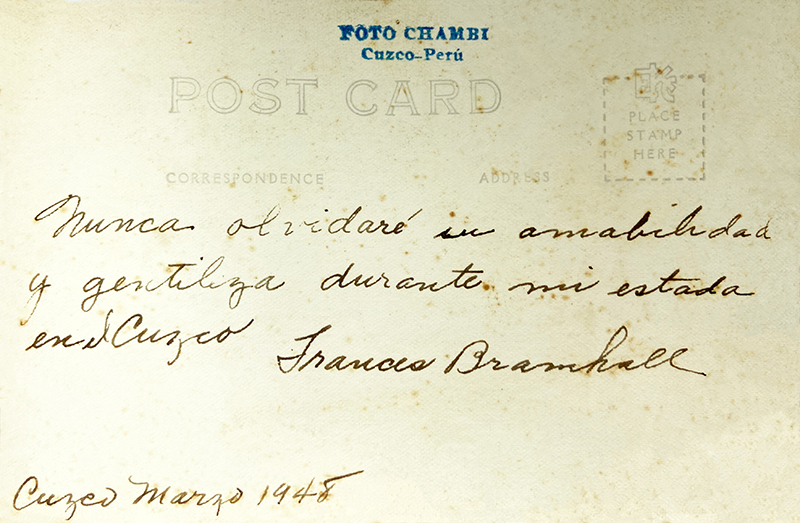 FOTO CHAMBI
Cuzco-Perú
POST CARD
PLACE
STAMP
HERE
CORRESPONDENCE
ADDRESS
Nunca olvidaré su amabilidad
y gentileza durante mi estada
en el Cuzco
Frances Bramhall
Cuzco Marzo 1948